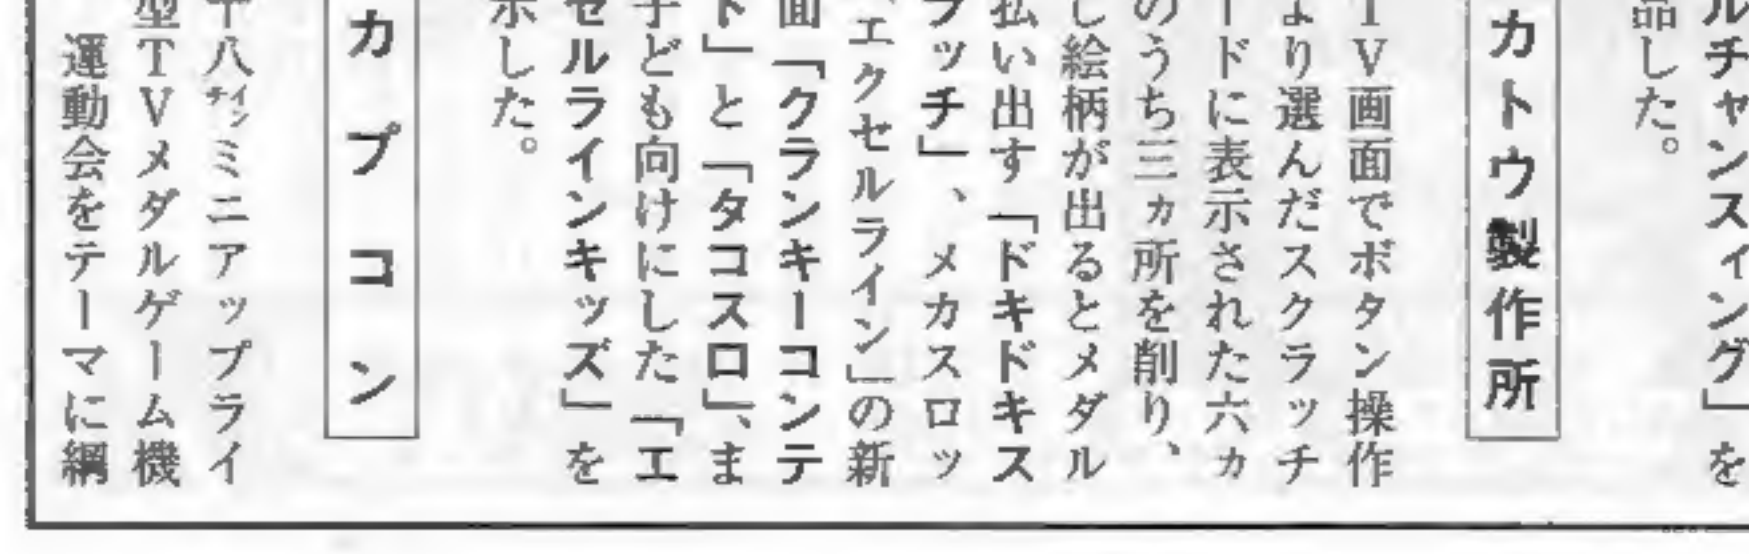 ルチャンスィング」を
品した。
カトウ製作所
TV画面でボタン操作
より選んだスクラッチ
ードに表示された六ヵ
のうち三ヵ所を削り、
し絵柄が出るとメダル
払い出す「ドキドキス
ラッチ」、メカスロッ
「エクセルライン」の新
面「クランキーコンテ
ト」と「タコスロ」、ま
子ども向けにした「エ
セルラインキッズ」を
示した。
カプコン
十八インチミニアップライ
型TVメダルゲーム機
運動会をテーマに綱